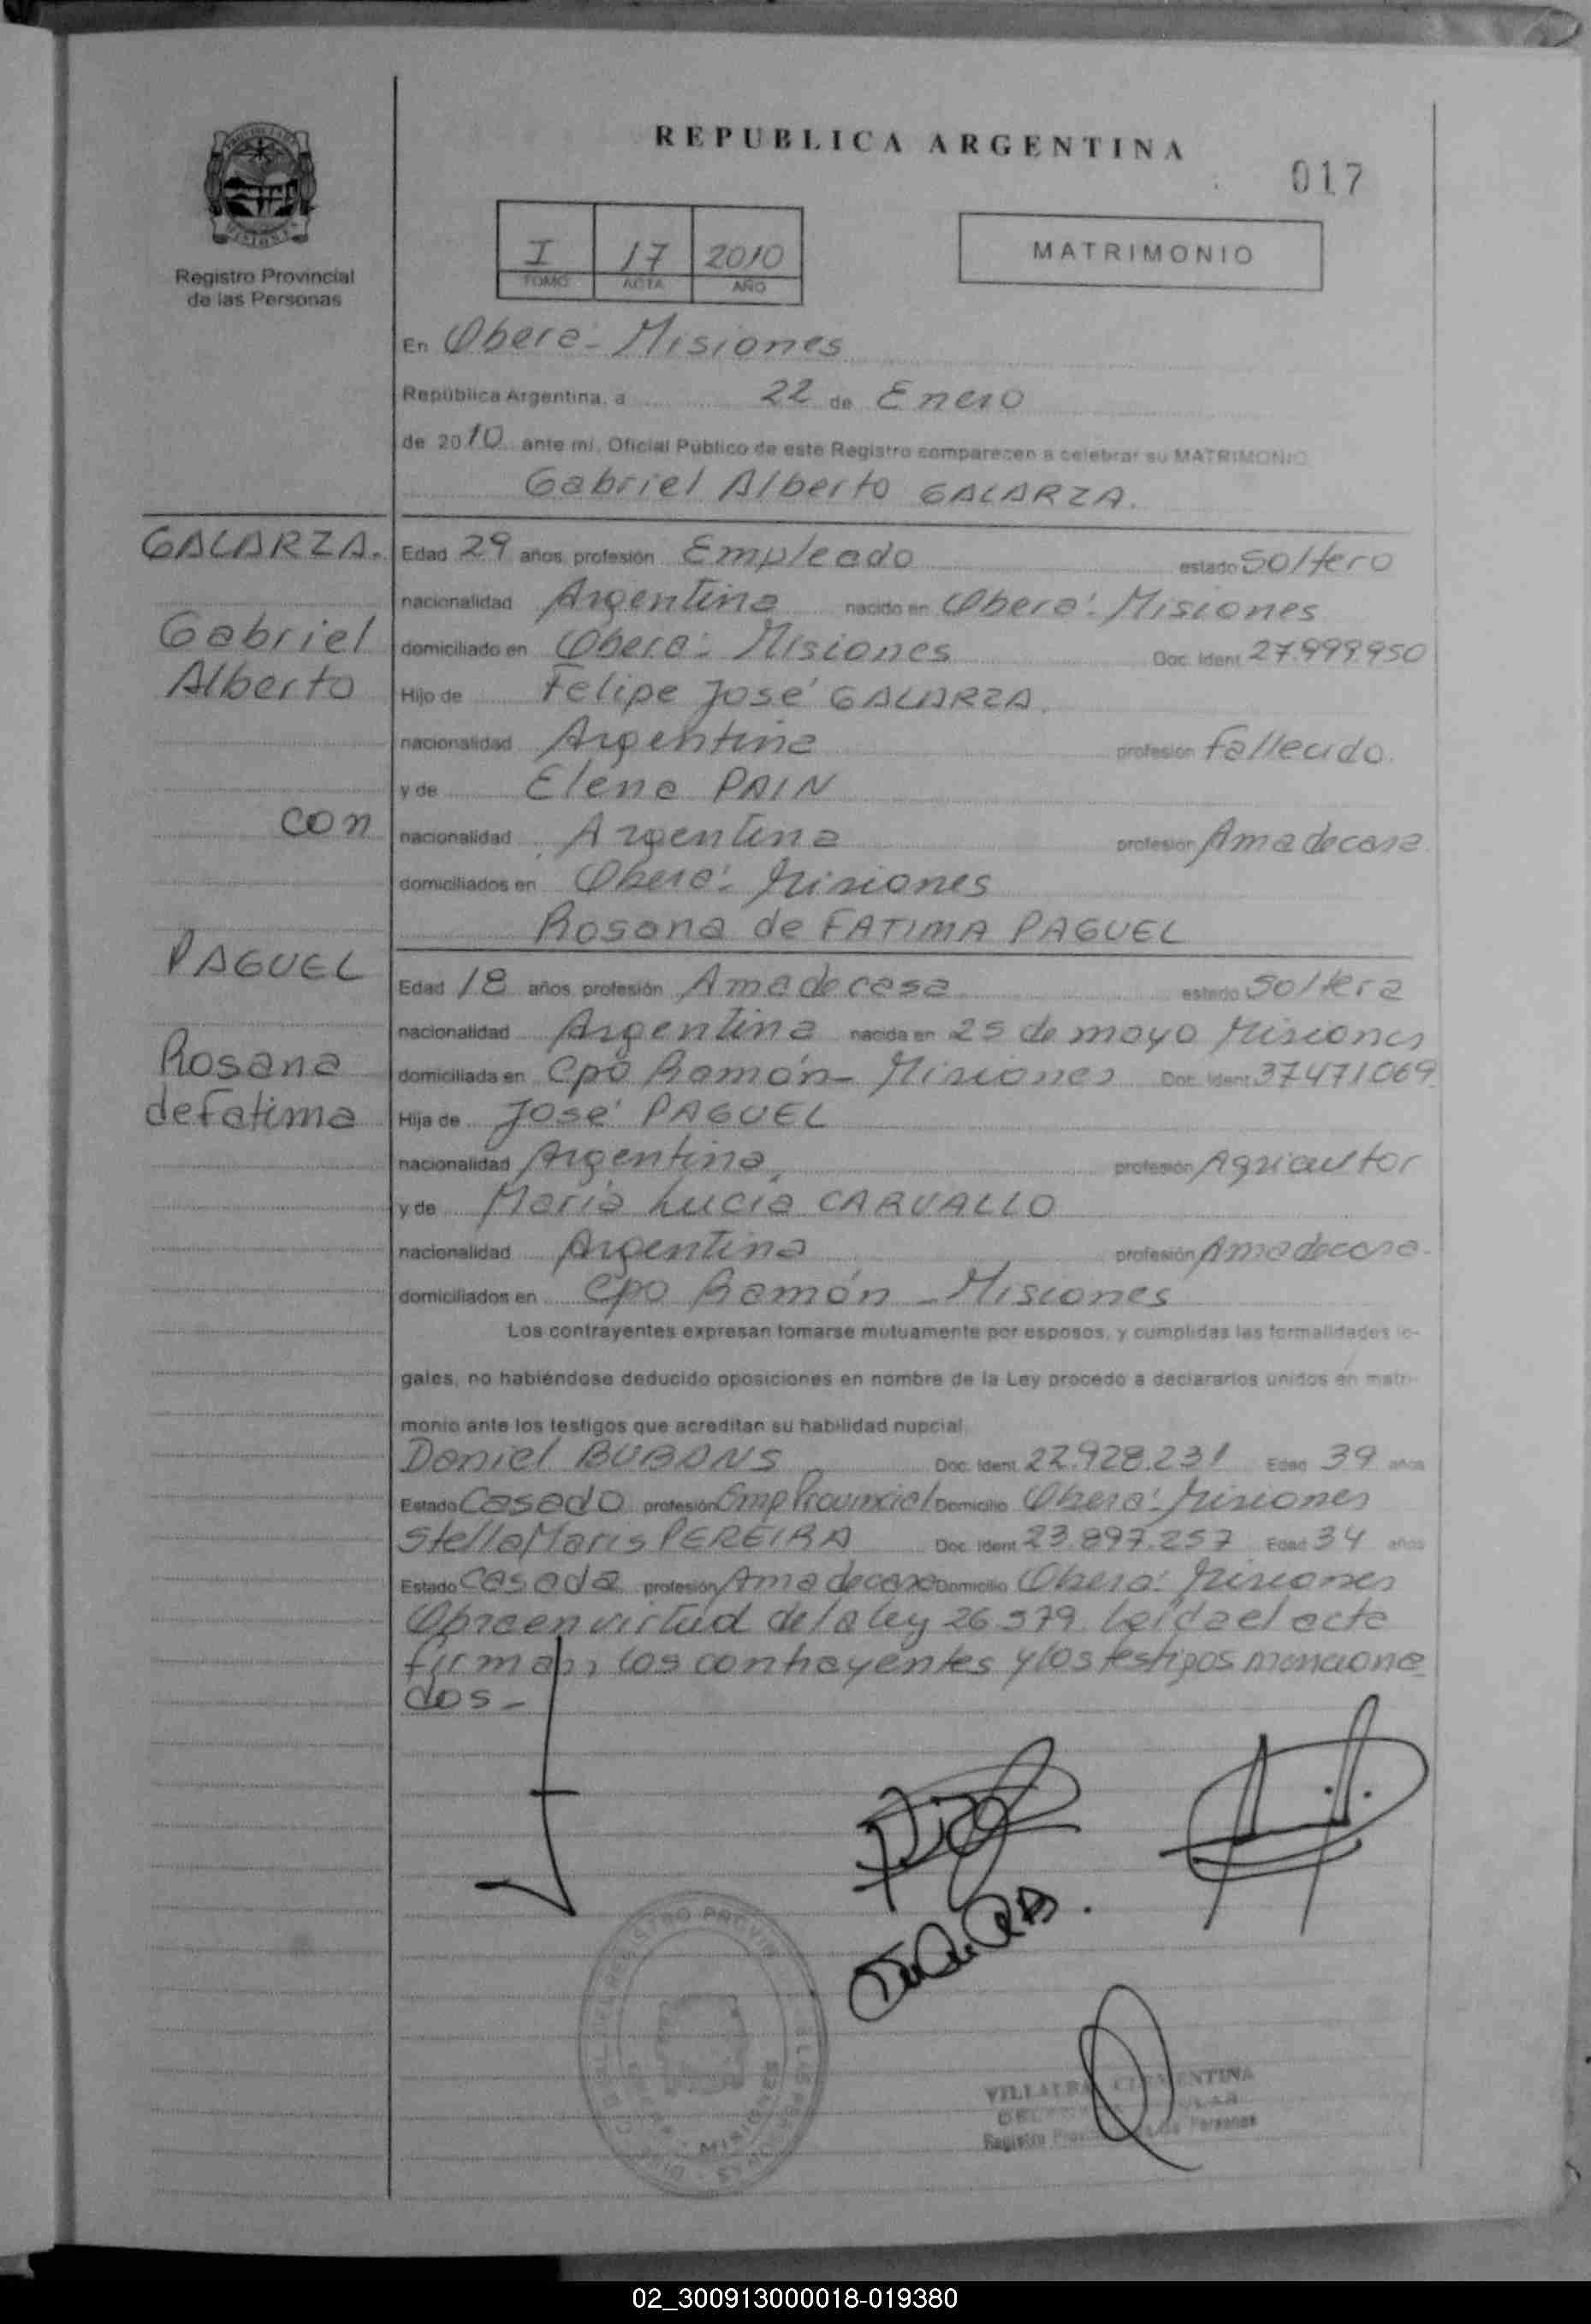 REPUBLICA ARGENTINA
017
I 17 2010
TOMO ACTA AÑO
MATRIMONIO
Registro Provincial
de las Personas
En Oberá - Misiones
República Argentina, a 22 de Enero
de 2010 ante mí, Oficial Público de este Registro comparecen a celebrar su MATRIMONIO
Gabriel Alberto GALARZA.
GALARZA.
Gabriel
Alberto
con
PAGUEL
Rosana
de Fatima
Edad 29 años profesión Empleado estado Soltero
nacionalidad Argentina nacido en Oberá - Misiones
domiciliado en Oberá - Misiones Doc. Ident. 27.999.950
Hijo de Felipe José GALARZA.
nacionalidad Argentina profesión Fallecido.
y de Elena PAIN
nacionalidad Argentina profesión Ama de casa
domiciliados en Oberá - Misiones
Rosana de FATIMA PAGUEL
Edad 18 años profesión Ama de casa estado Soltera
nacionalidad Argentina nacida en 25 de mayo Misiones
domiciliada en Cpo Ramón - Misiones Doc. Ident. 37471069
Hija de José PAGUEL
nacionalidad Argentina profesión Agricultor
y de María Lucía CARVALLO
nacionalidad Argentina profesión Ama de casa
domiciliados en Cpo Ramón - Misiones
Los contrayentes expresan tomarse mutuamente por esposos, y cumplidas las formalidades le-
gales, no habiéndose deducido oposiciones en nombre de la Ley procedo a declararlos unidos en matri-
monio ante los testigos que acreditan su habilidad nupcial
Daniel BUBANS Doc. Ident. 22.928.231 Edad 39 años
Estado Casado profesión Emp Provincial Domicilio Oberá - Misiones
Stella Maris PEREIRA Doc. Ident. 23.897.257 Edad 34 años
Estado Casada profesión Ama de casa Domicilio Oberá - Misiones
Obra en virtud de la ley 26.579. Leída el acta
firman, los contrayentes y los testigos menciona
dos -
MISIONES
VILLALBA CLEMENTINA
02_300913000018-019380